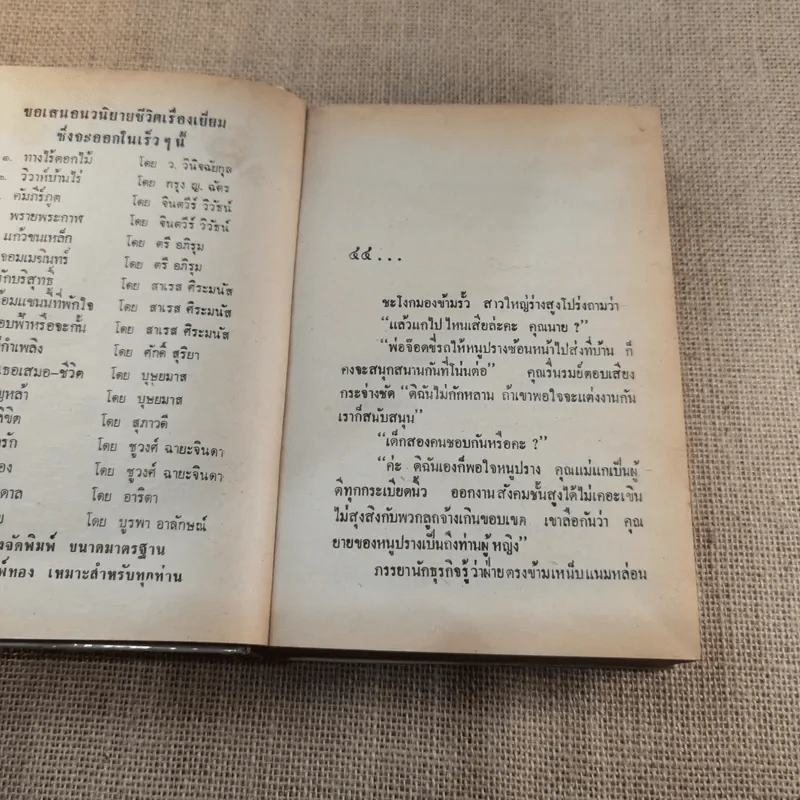 ขอเสนอนวนิยายชีวิตเรื่องเยี่ยม
ซึ่งจะออกในเร็ว ๆ นี้
๑. ทางไร้ดอกไม้ โดย ว. วินิจฉัยกุล
๒. วิวาห์บ้านไร่ โดย กรุง ญ. ฉัตร
คัมภีร์ภูต โดย จินตวีร์ วิวัธน์
พรายพระกาฬ โดย จินตวีร์ วิวัธน์
แก้วขนเหล็ก โดย ตรี อภิรุม
จอมเมฆินทร์ โดย ตรี อภิรุม
รักบริสุทธิ์ โดย สาเรส ศิระมนัส
อ้อมแขนนี้ที่พักใจ โดย สาเรส ศิระมนัส
อบฟ้าหรือจะกั้น โดย สาเรส ศิระมนัส
กำเพลิง โดย ศักดิ์ สุริยา
เธอเสมอ-ชีวิต โดย บุษยมาส
หล้า โดย บุษยมาส
ลิขิต โดย สุภาวดี
รัก โดย ชูวงศ์ ฉายะจินดา
อง โดย ชูวงศ์ ฉายะจินดา
ดาล โดย อาริตา
โดย บูรพา อาลักษณ์
จัดพิมพ์ ขนาดมาตรฐาน
ทอง เหมาะสำหรับทุกท่าน
๔๔...
ชะโงกมองข้ามรั้ว สาวใหญ่ร่างสูงโปร่งถามว่า
“แล้วแกไปไหนเสียล่ะคะ คุณนาย ?”
“พ่อจ๊อดขี่รถให้หนูปรางซ้อนหน้าไปส่งที่บ้าน ก็
คงจะสนุกสนานกันที่โน่นต่อ” คุณรื่นรมย์ตอบเสียง
กระจ่างชัด “ดิฉันไม่กักหลาน ถ้าเขาพอใจจะแต่งงานกัน
เราก็สนับสนุน”
“เด็กสองคนชอบกันหรือคะ ?”
“ค่ะ ดิฉันเองก็พอใจหนูปราง คุณแม่แกเป็นผู้
ดีทุกกระเบียดนิ้ว ออกงานสังคมชั้นสูงได้ไม่เคอะเขิน
ไม่สุงสิงกับพวกลูกจ้างเกินขอบเขต เขาลือกันว่า คุณ
ยายของหนูปรางเป็นถึงท่านผู้หญิง”
ภรรยานักธุรกิจรู้ว่าฝ่ายตรงข้ามเหน็บแนมหล่อน